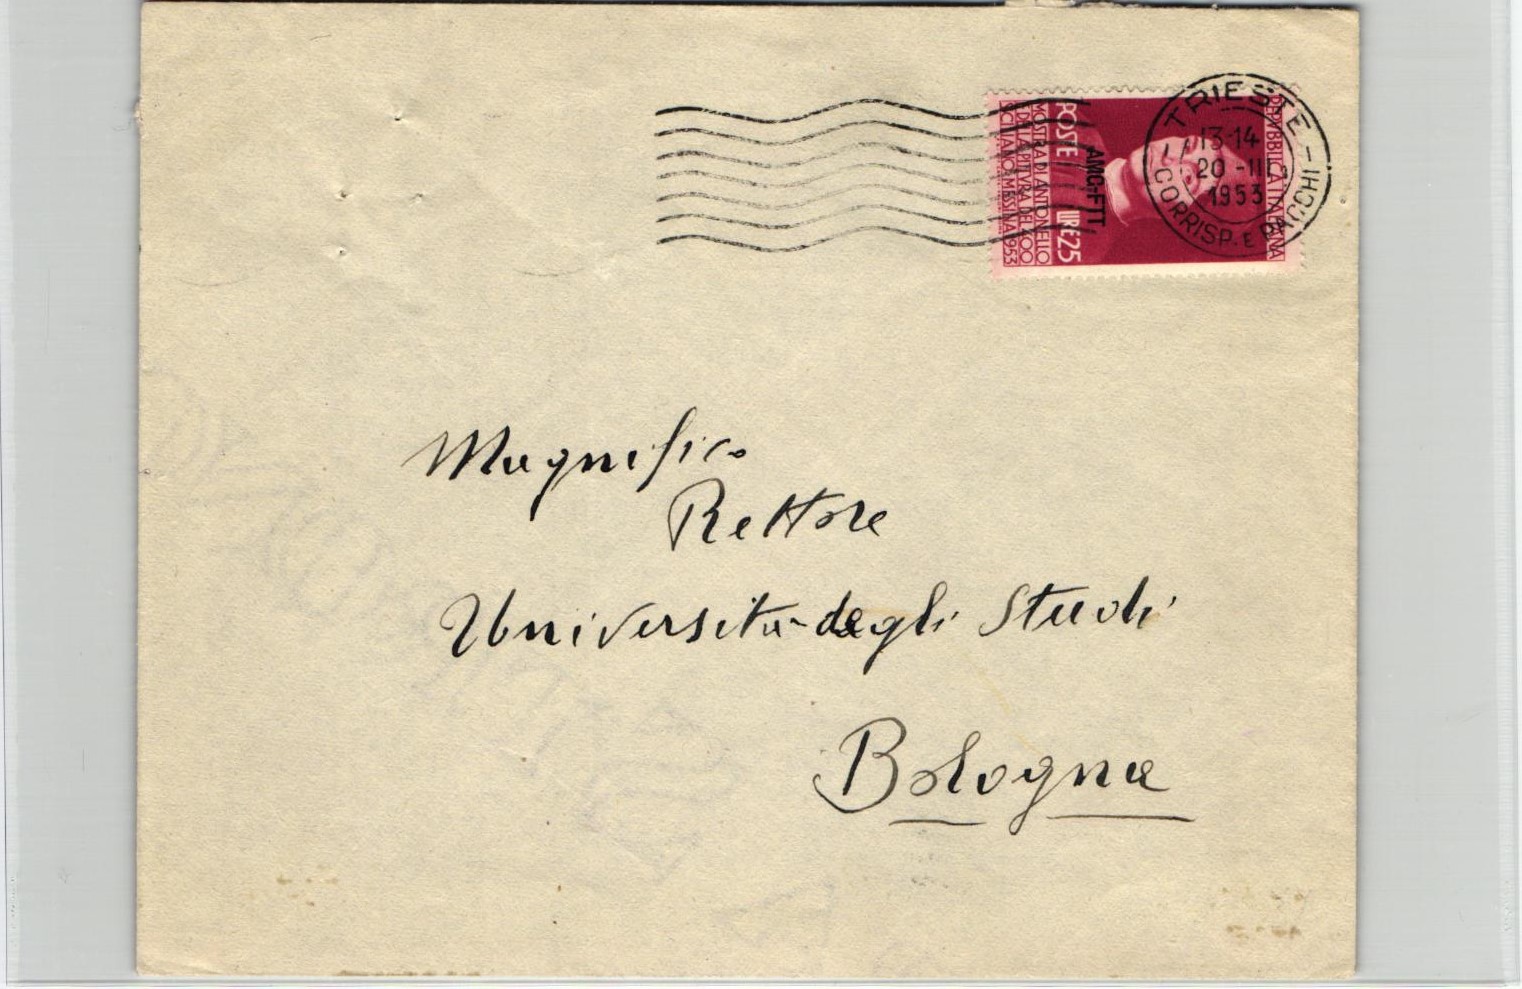 TRIESTE
CORRISP. E PACCHI
13-14
20 -III
1953
REPVBBLICA ITALIANA
AMG-FTT
POSTE LIRE 25
MOSTRA DI ANTONELLO
E DELLA PITVRA DEL '400
IN SICILIA MESSINA 1953
Magnifico
Rettore
Università degli Studi
Bologna